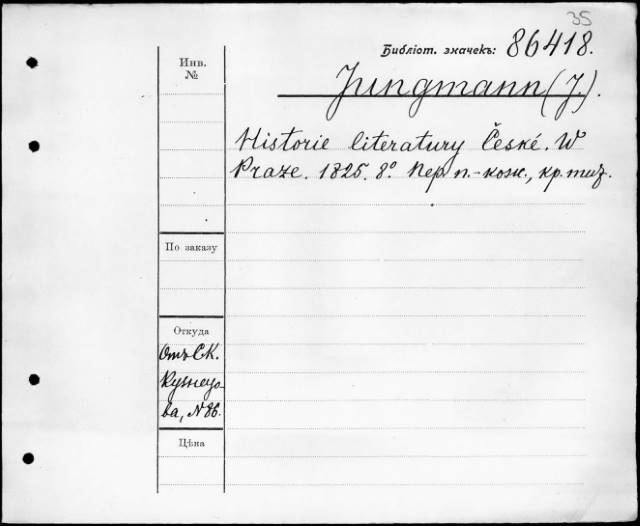 35
Библіот. значекъ: 86418.
Инв. №
Jungmann (J.).
Historie literatury České. W
Praze. 1825. 8º. Пер п.-кож., кр. тиз.
По заказу
Откуда
Отъ С.К.
Кузнецо-
ва, № 86.
Цѣна